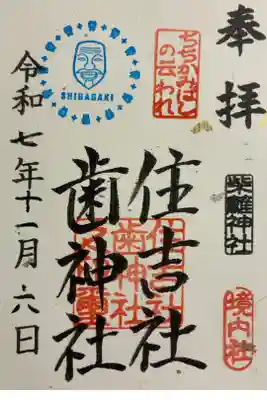 奉拝
柴籬神社
境内社
の云われ
住吉社
住吉社
歯神社
歯神社
SHIBAGAKI
令和七年十一月六日